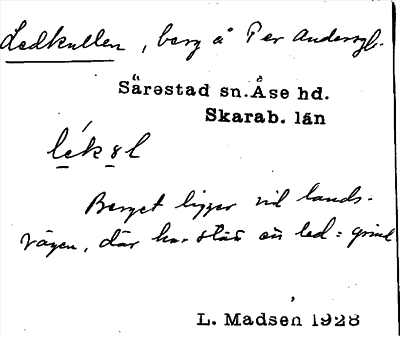 Ledkullen, berg å Per Andersg.
Särestad sn. Åse hd.
Skarab. län
lékəl
Berget ligger vid lands-
vägen, där har stått en led = grind.
L. Madsen 1928